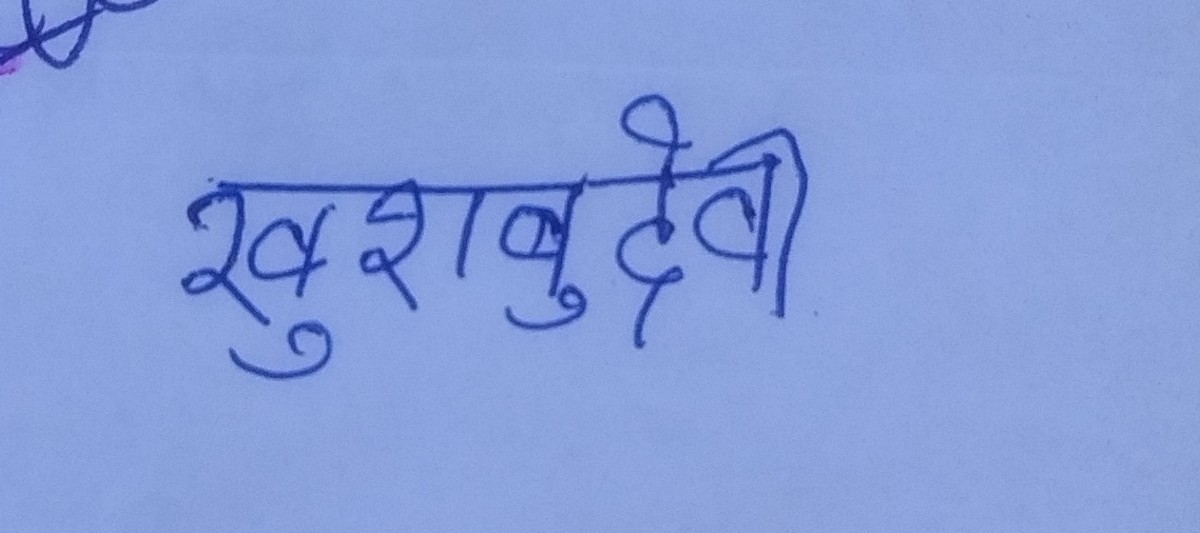 खुशबु देवी